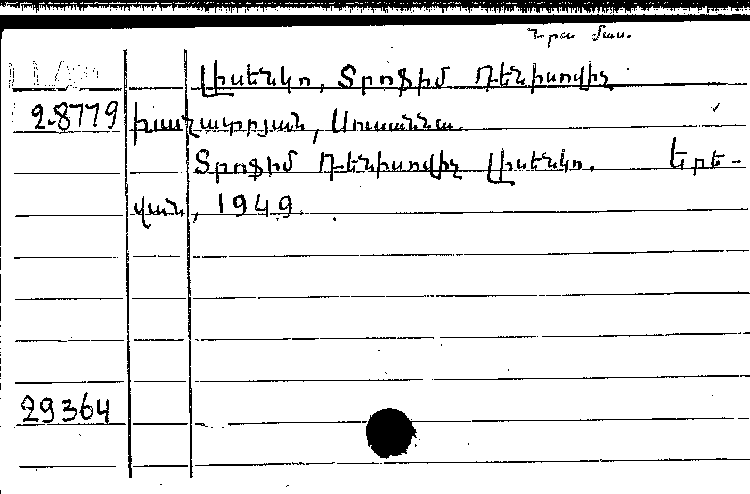 Նրա մաս.
Լիսենկո, Տրոֆիմ Դենիսովիչ
2.8779 Խաչատրյան, Սուսաննա.
Տրոֆիմ Դենիսովիչ Լիսենկո. Երե-
վան, 1949.
29364